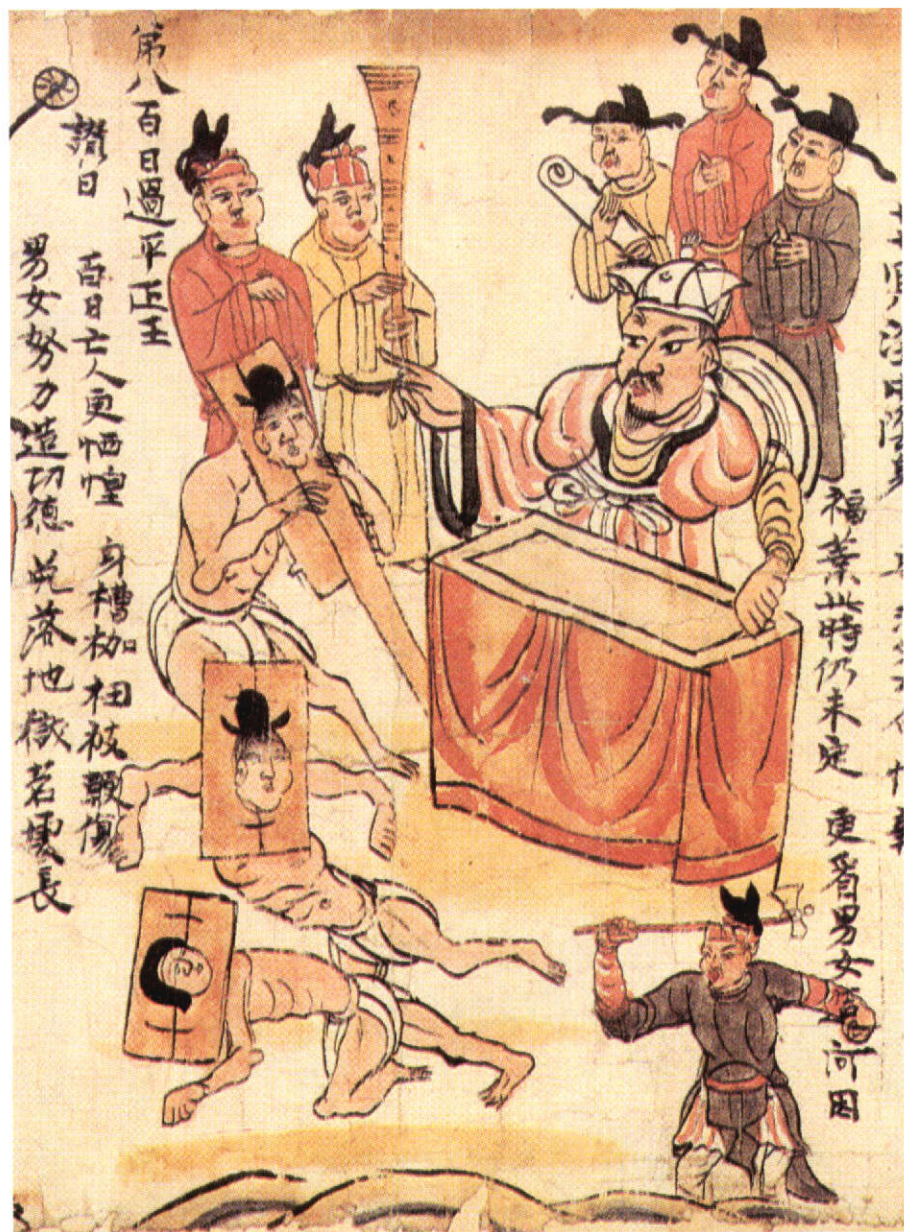 福業此時仍未定 更看男女造何因
第八百日過平正王
讚曰 百日亡人更恓惶 身槽枷杻被鞭傷
男女努力造功徳 免落地獄苦處長